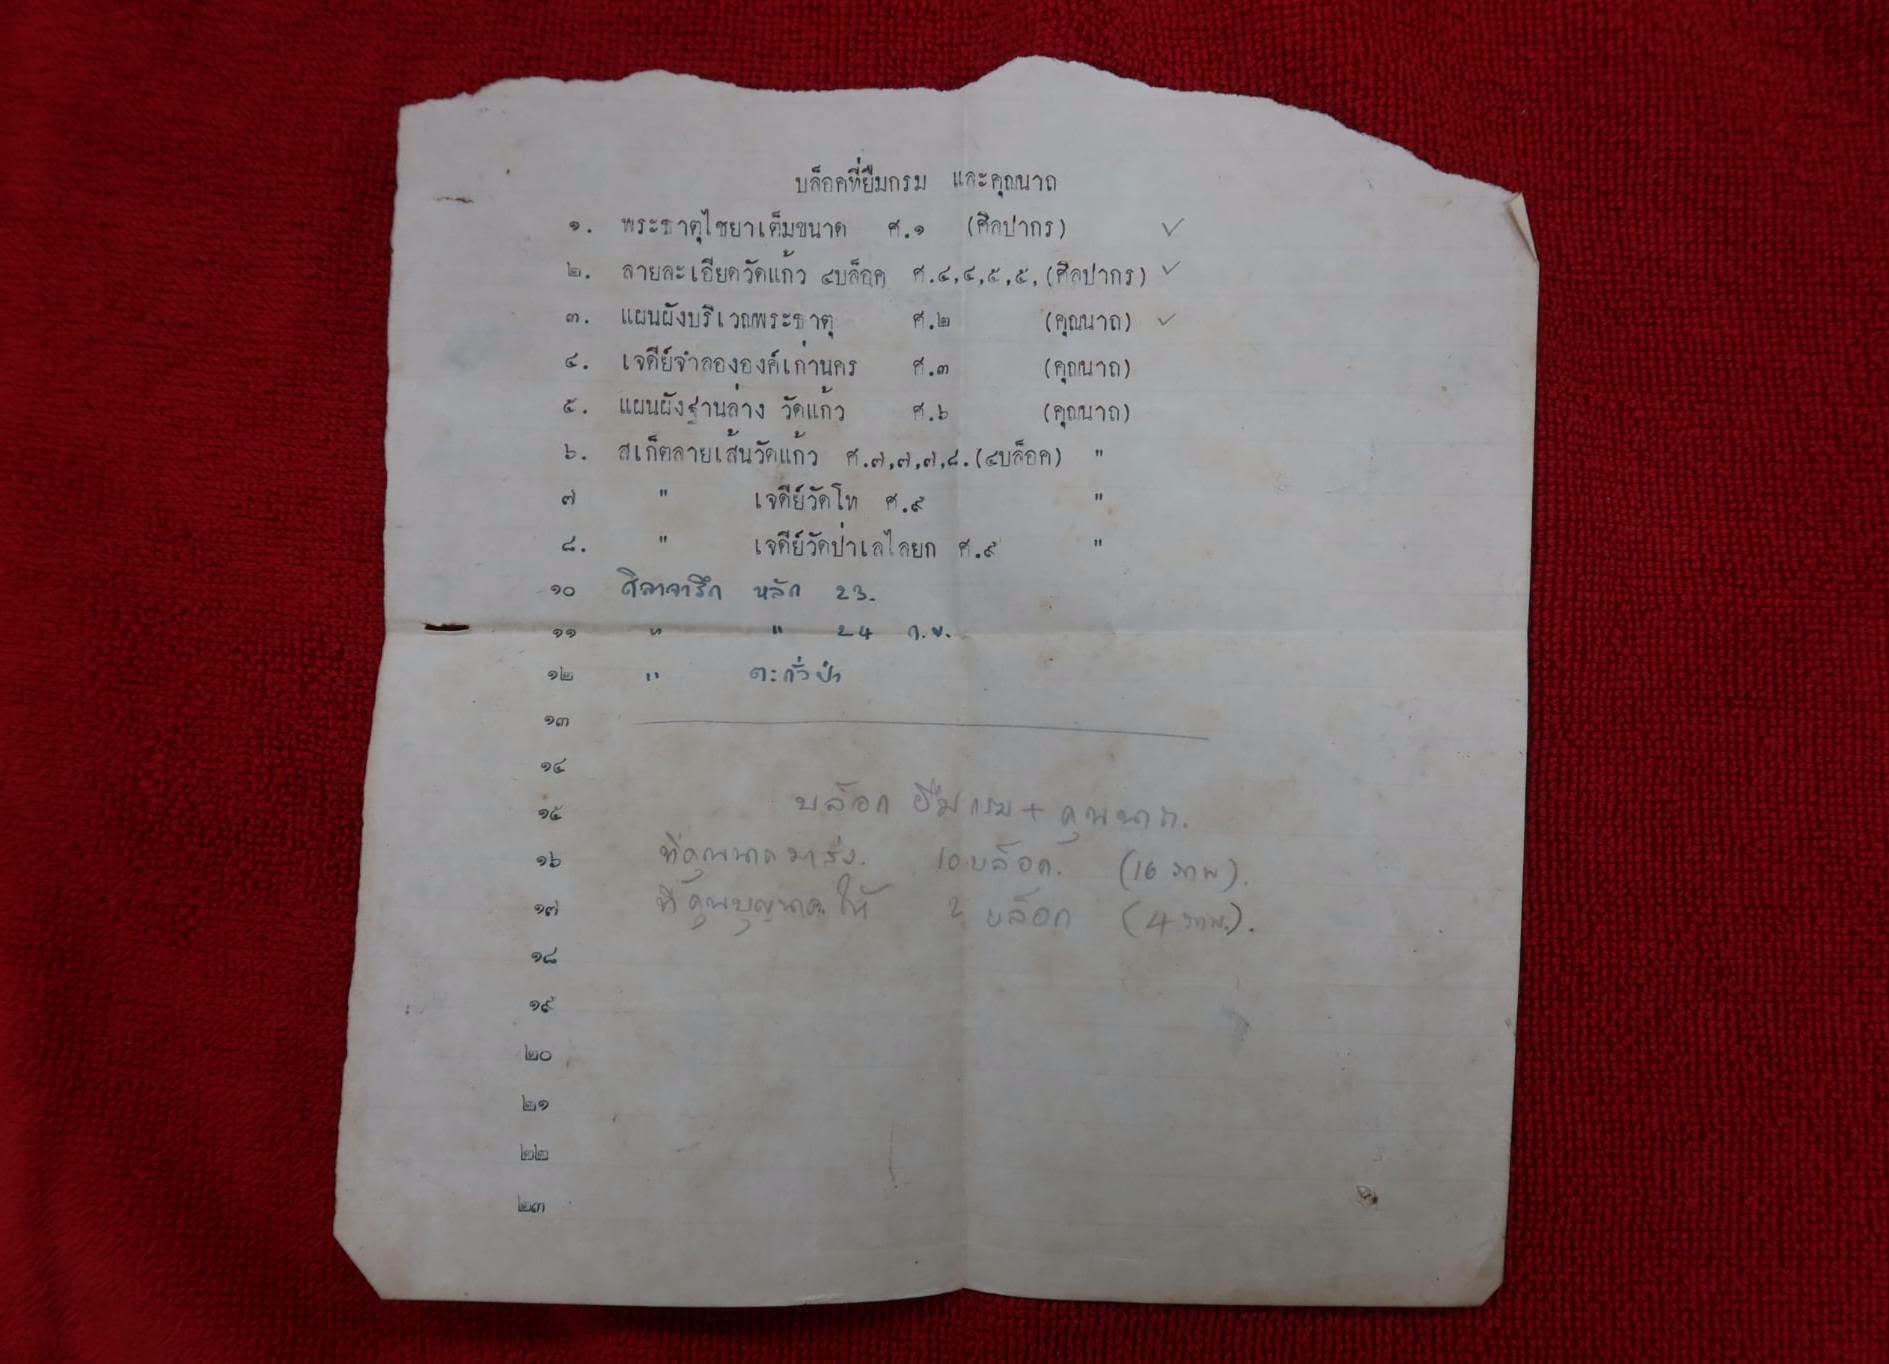 บล็อคที่ยืมกรม และคุณนาถ
๑. พระธาตุไชยาเต็มขนาด ศ.๑ (ศิลปากร) ✓
๒. ลายละเอียดวัดแก้ว ๔บล็อค ศ.๔,๔,๕,๕, (ศิลปากร) ✓
๓. แผนผังบริเวณพระธาตุ ศ.๒ (คุณนาถ) ✓
๔. เจดีย์จำลององค์เก่านคร ศ.๓ (คุณนาถ)
๕. แผนผังฐานล่าง วัดแก้ว ศ.๖ (คุณนาถ)
๖. สเก็ตลายเส้นวัดแก้ว ศ.๗,๗,๗,๘. (๔บล็อค) "
๗ " เจดีย์วัดโท ศ.๙ "
๘. " เจดีย์วัดป่าเลไลยก ศ.๙ "
๑๐ ศิลาจารึก หลัก 23.
๑๑ " " 24 ก.ข.
๑๒ " ตะกั่วป่า
๑๓
๑๔
๑๕ บล๊อก ยืมกรม + คุณนาถ.
๑๖ ที่คุณนาถมาส่ง. 10 บล๊อค. (16 ภาพ).
๑๗ ที่คุณบุญนาคให้ 2 บล๊อก (4 ภาพ).
๑๘
๑๙
๒๐
๒๑
๒๒
๒๓